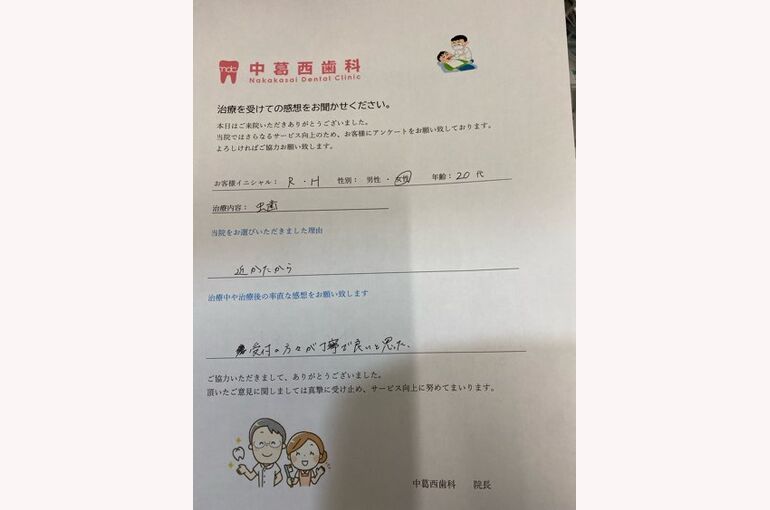 中葛西歯科
Nakakasai Dental Clinic
治療を受けての感想をお聞かせください。
本日はご来院いただきありがとうございました。
当院ではさらなるサービス向上のため、お客様にアンケートをお願い致しております。
よろしければご協力お願い致します。
お客様イニシャル： R・H 性別： 男性 ・ 女性 年齢：20 代
治療内容： 虫歯
当院をお選びいただきました理由
近かたから
治療中や治療後の率直な感想をお願い致します
受付の方々が丁寧で良いと思った、
ご協力いただきまして、ありがとうございました。
頂いたご意見に関しましては真摯に受け止め、サービス向上に努めてまいります。
中葛西歯科 院長